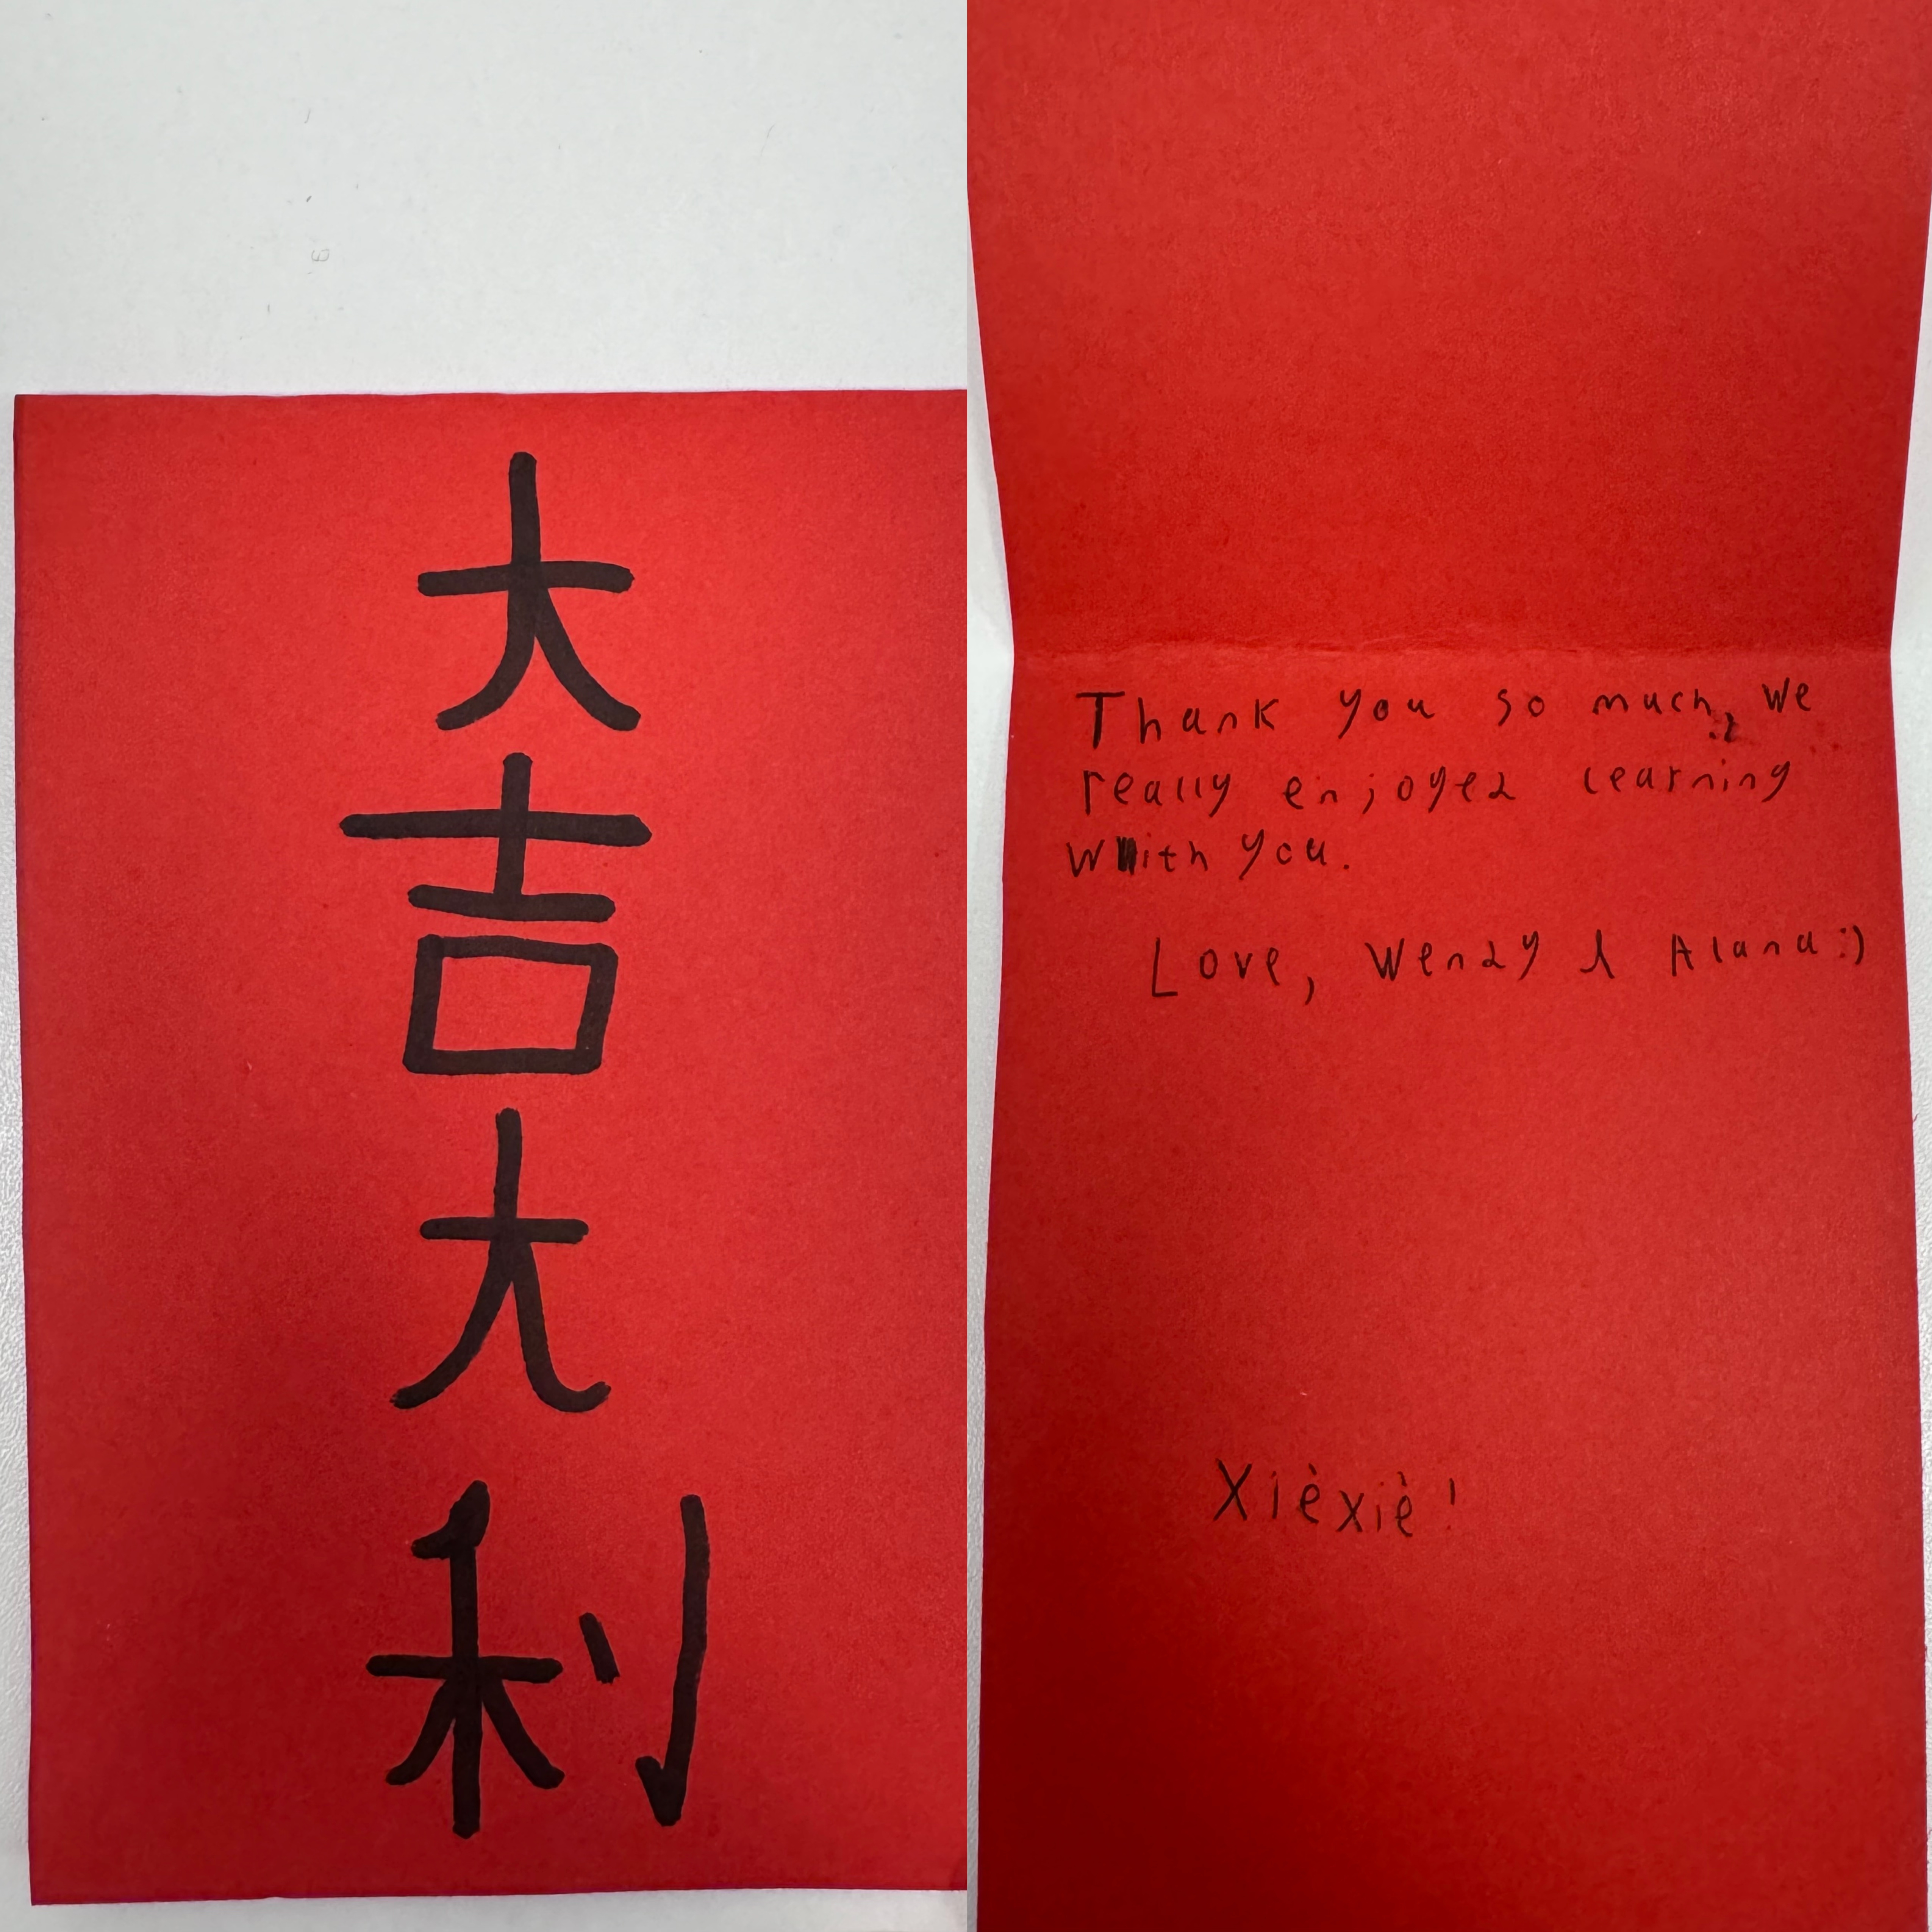 大
吉
大
利
Thank you so much, we
really enjoyed learning
with you.
Love, Wendy & Alana :)
Xièxiè!